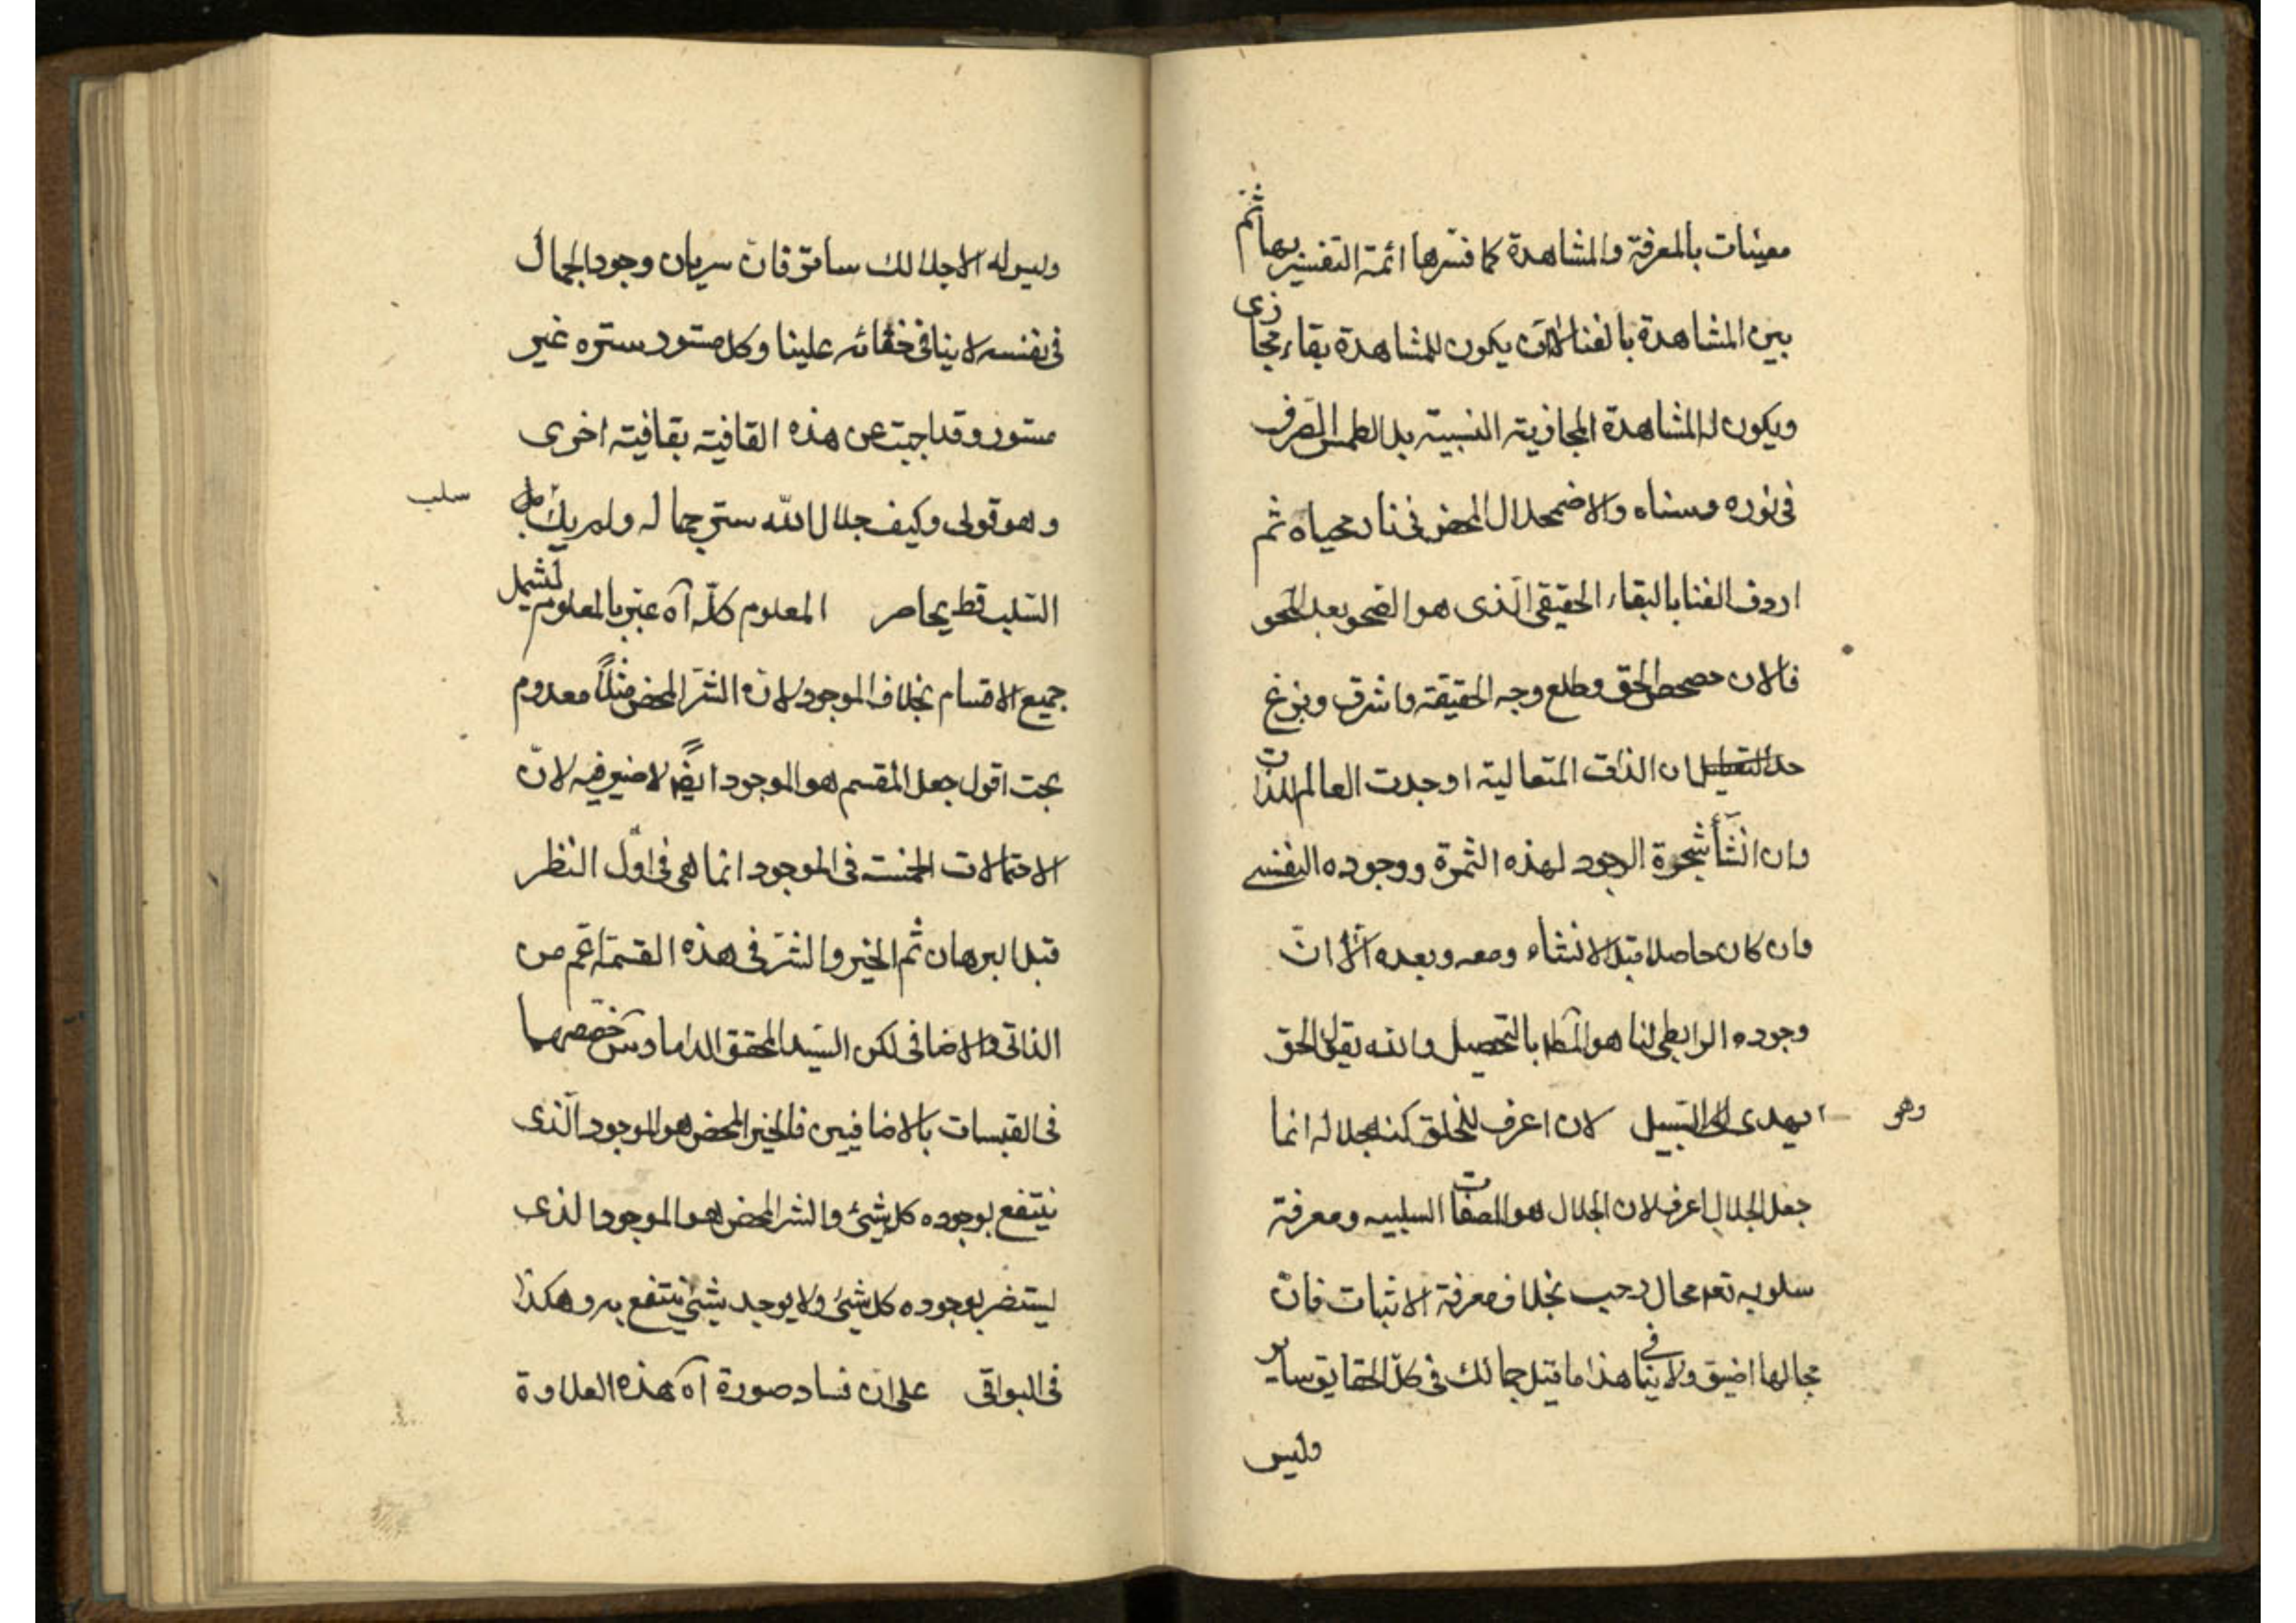 معينات بالمعرفة والمشاهدة كما فسرها ائمة التفسير بها ثم
بين المشاهدة بالفنا لا ان يكون للمشاهدة بقاء مجازى
ويكون له المشاهدة المجازية النسبية بل الطمس الصرف
فى نوره وسناه والاضمحلال المحض فى نار محياه ثم
اردف الفنا بالبقاء الحقيقى الّذى هو الصحو بعد المحو
فالان حصحص الحق وطلع وجه الحقيقة واشرق وبزغ
ان الذات المتعالية اوجدت العالم للذات
وان انشأ شجرة الوجود لهذه الثمرة ووجوده النفسى
وان كان حاصلا قبل الانشاء ومعه وبعده الا ان
وجوده الرابطى لنا هو المط بالتحصيل والله يقول الحق
وهو يهدى الى السّبيل لان اعرف للخلق كنه جلاله انما
جعل الجلال اعرف لان الجلال هو الصفات السلبيه ومعرفة
سلوبه تعم مجال رحب بخلاف معرفة الاثبات فانّ
مجالها اضيق ولا ينافى هذا ما قيل جمالك فى كلّ الحقايق ساير
وليس
وليس له الا جلالك ساتر فانّ سريان وجود الجمال
فى نفسه لا ينافى خفائه علينا وكل مستور ستره غير
مستور وقد اجبت عن هذه القافية بقافية اخرى
وهو قولى وكيف جلال اللّه ستر جماله ولم يك سلب
السّلب قط يحاصر المعلوم كلّه آه عبّر بالمعلوم لشمل
جميع الاقسام بخلاف الموجود لانّ الشّر المحض مثلاً معدوم
بحت اقول جعل المقسم هو الموجود ايضً لا ضير فيه لانّ
الاحتمالات الخمسة فى الموجود انما هى فى اوّل النظر
قبل البرهان ثم الخير والشّر فى هذه القسمة اعم من
الذاتى والاضافى لكن السّيد المحقق الداماد س خصّصهما
فى القبسات بالاضافيين فالخير المحض هو الموجود الّذى
ينتفع بوجوده كل شئ والشر المحض هو الموجود الذى
يستضر بوجوده كل شئ ولا يوجد شئ ينتفع به وهكذا
فى البواقى على انّ فساد صورة آه هذه العلاوة